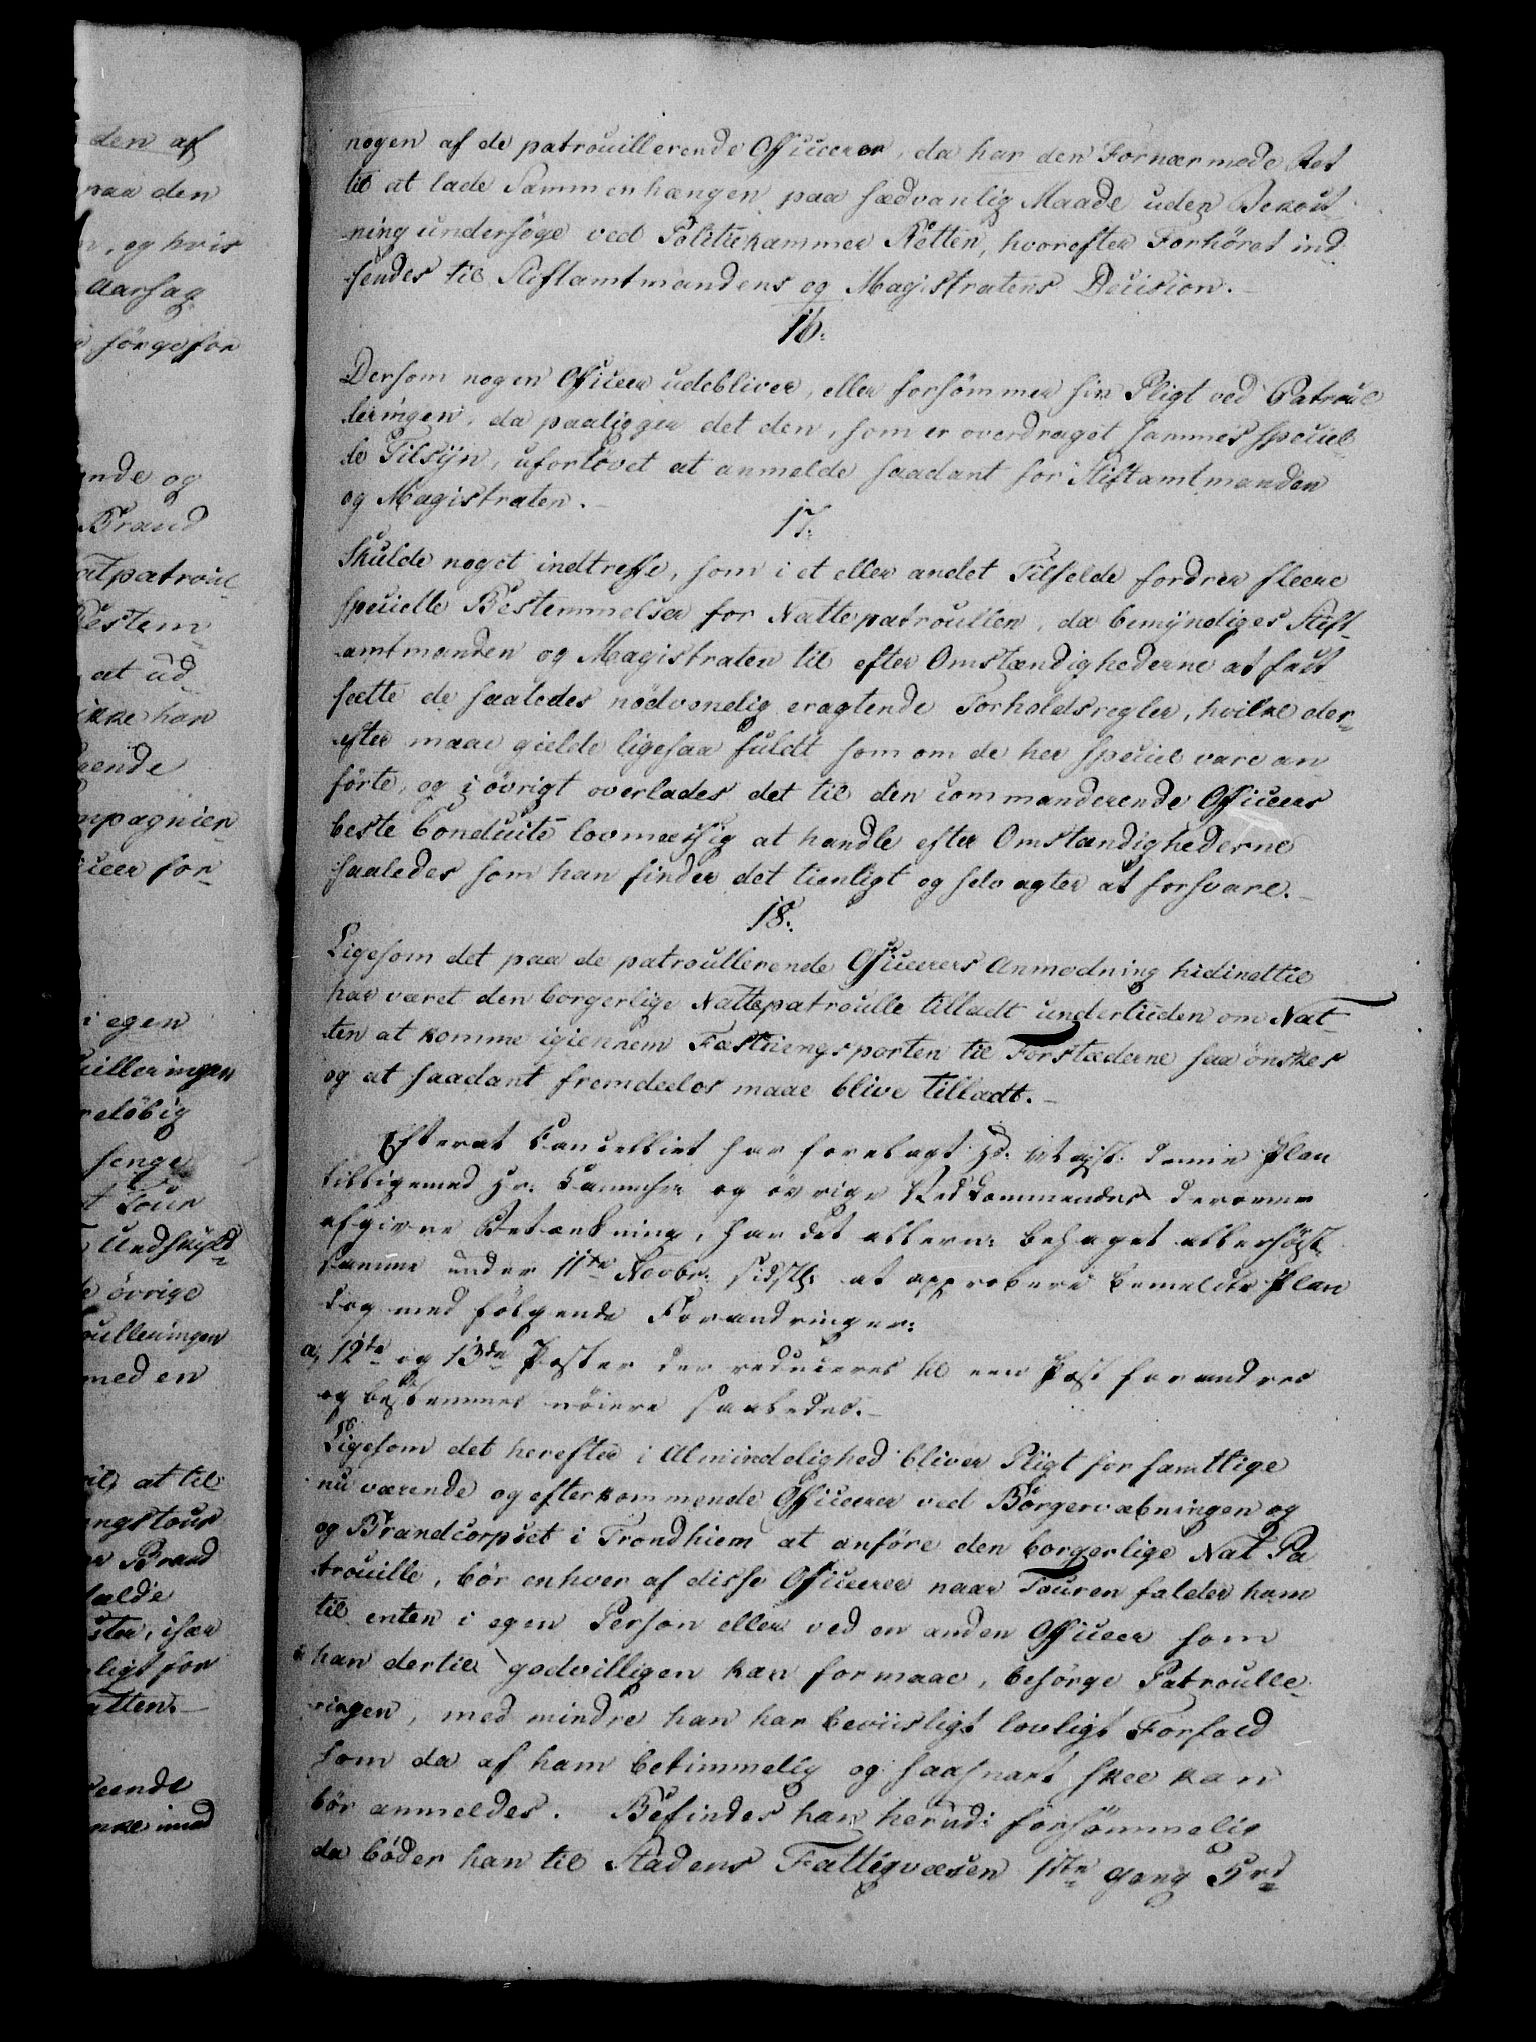 den af
paa den
, og hvis
aarsag
sørge for
ende og
Brand
atpatroul-
Bestem-
at ud-
ikke han
aaende
mpagnier
iceer for-
i egen
uilleringen
reløbig
senge
t Tour
Undskyld-
e øvrige
oulleringen
med en
vil at til-
angstour
Brand
falde
ster, især
ligt for
atten.-
eende
nke imod
nogen af de patrouillerende Officerer, da har den Fornærmede Ret
til at lade Sammenhængen paa sædvanlig Maade uden Bekost-
ning undersøge ved Politiekammer Retten, hvorefter Forhøret ind-
sendes til Stiftamtmandens og Magistratens Decision.-
16.
Dersom nogen Officeer udebliver, eller forsømmer sin Pligt ved Patroul-
leringen, da paaligger det den, som er overdraget sammes speciel-
le Tilsyn, ufortøvet at anmelde saadant for Stiftamtmanden
og Magistraten.-
17.
Skulde noget indtreffe, som i et eller andet Tilfelde fordrer fleere
specielle Bestemmelser for Nattepatroullen, da bemyndiges Stift-
amtmanden og Magistraten til efter Omstændighederne at fast-
sætte de saaledes nødvendig eragtende Forholdsregler, hvilke der-
efter maae gielde ligesaa fuldt som om de her speciel vare an-
førte, og i øvrigt overlades det til den commanderende Officeers
beste Conduite lovmæssig at handle efter Omstændighederne
saaledes som han finder det tienligt og selv agter at forsvare.-
18.
Ligesom det paa de patroullerende Officerers Anmodning hidindtil
har været den borgerlige Nattepatroulle tilladt undertiiden om Nat-
ten at komme igiennem Fæstningsporten til Forstæderne saa ønskes
og at saadant fremdeeles maae blive tilladt.-
Efterat Cancelliet har forelagt Hs. Majst. denne Plan
tilligemed Hr. Kammerh. og øvrige Vedkommendes derover
afgivne Betænkning, har det allern. behaget allerhøist-
samme under 11te Novbr. sidstl. at approbere bemeldte Plan
dog med følgende Forandringer:
a, 12te og 13de Poster der reduceres til een Post forandres
og bestemmes nøiere saaledes.-
Ligesom det herefter i Almindelighed bliver Pligt for samtlige
nu værende og efterkommende Officerer ved Borgervæbningen og
og Brandcorpset i Trondhiem at anføre den borgerlige Nat Pa-
trouille, bør enhver af disse Officerer naar Touren falder ham
til enten i egen Person eller ved en anden Officeer som
han dertil godvilligen kan formaae, besørge Patroulle-
ringen, med mindre han har beviisligt lovligt Forfald
som da af ham betimmelig og saasnart skee kan
bør anmeldes. Befindes han herudi forsømmelig
da bøder han til Stadens Fattigvæsen 1ste Gang 5rd